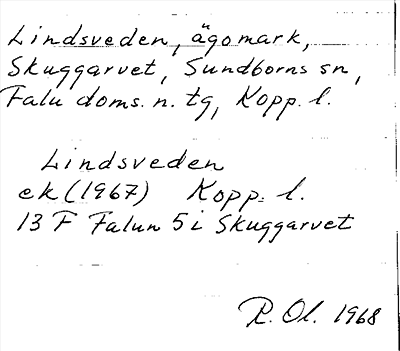 Lindsveden, ägomark,
Skuggarvet, Sundborns sn,
Falu doms. n. tg, Kopp. l.
Lindsveden
ek (1967) Kopp. l.
13 F Falun 5 i Skuggarvet
R. Ol. 1968